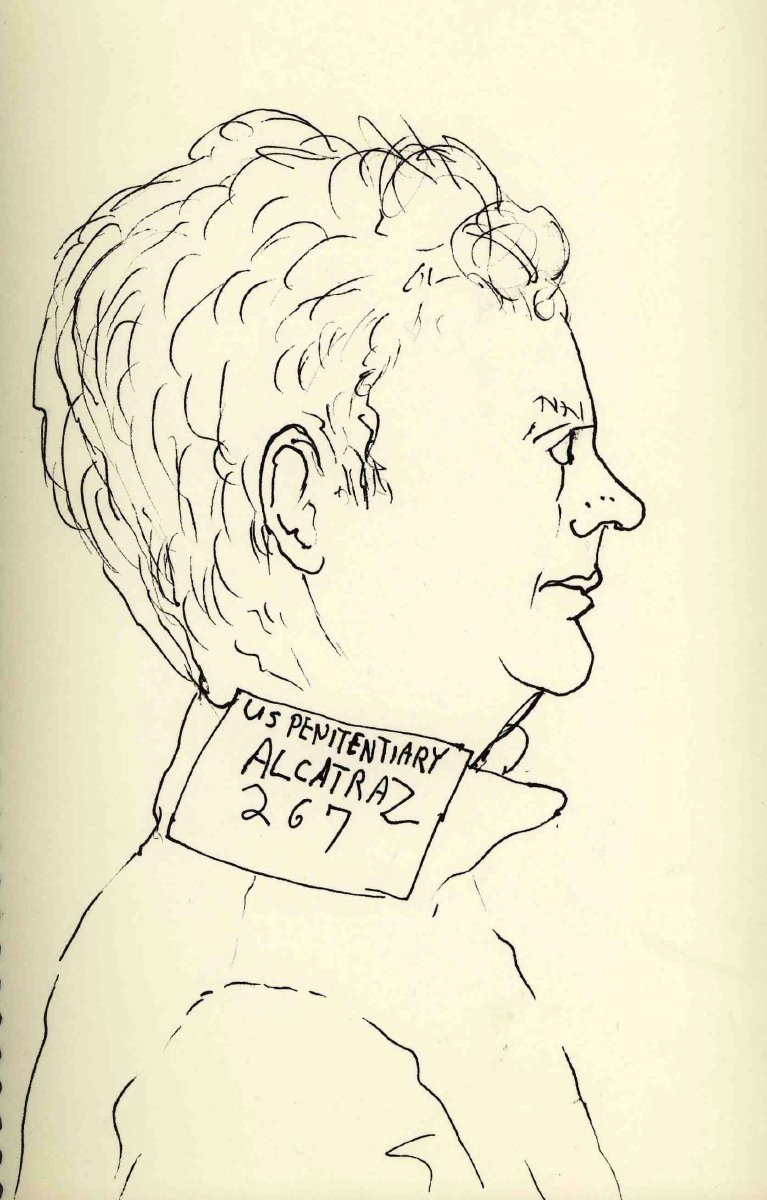 US PENITENTIARY
ALCATRAZ
267